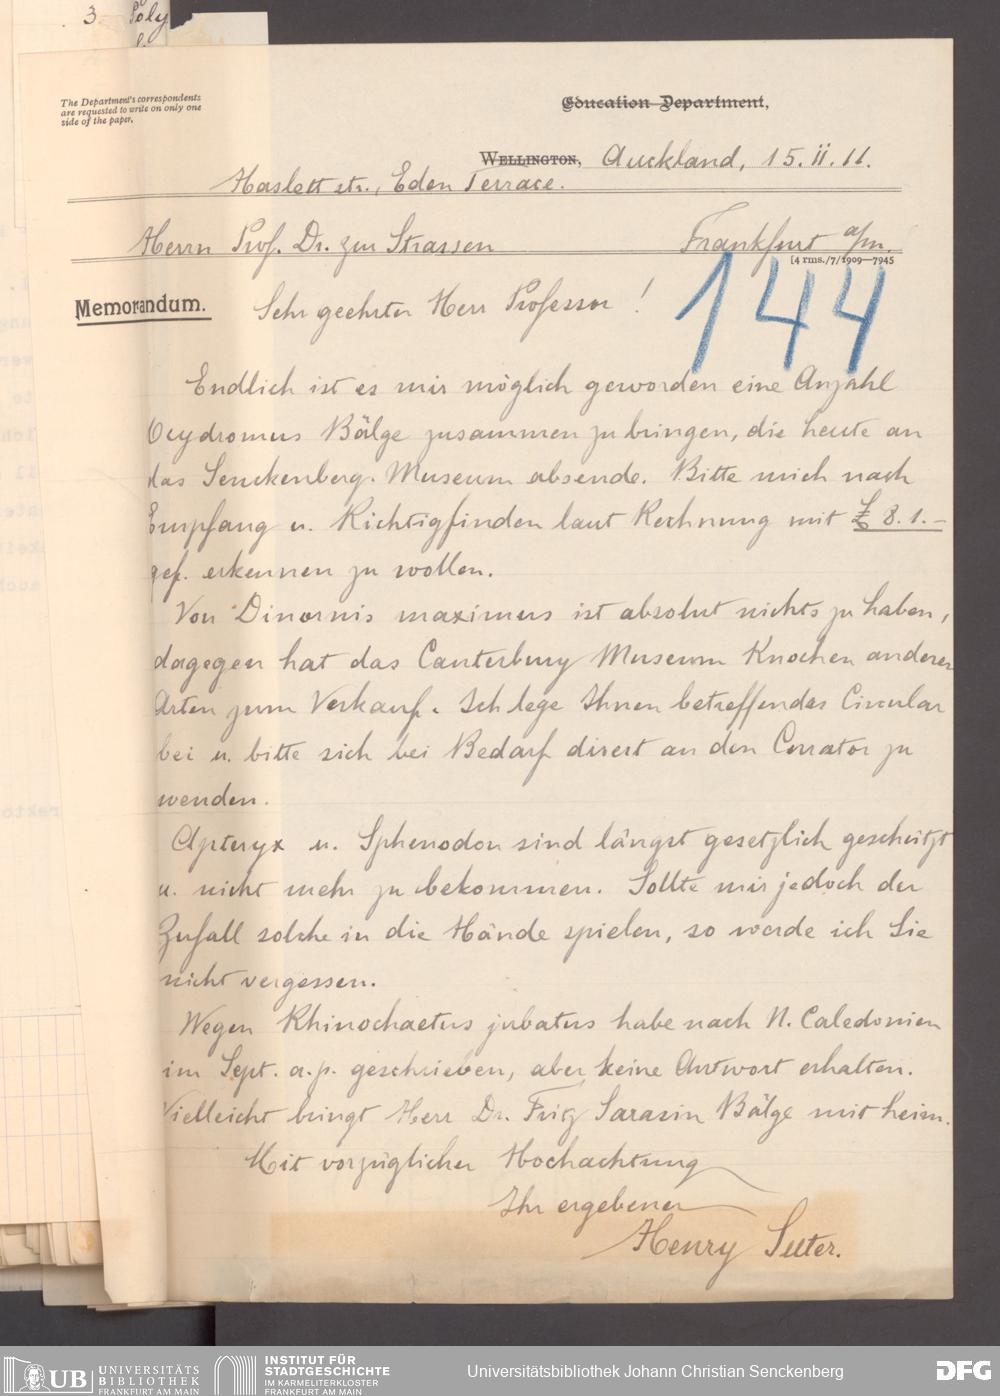 3. Poly
The Department's correspondents
are requested to write on only one
side of the paper.
Education Department,
Wellington, Auckland, 15. II. 11.
Haslett str., Eden Terrace.
Herrn Prof. Dr. zur Strassen Frankfurt a/m.
[4 rms./7/1909—7945
144
Memorandum. Sehr geehrter Herr Professor!
Endlich ist es mir möglich geworden eine Anzahl
Ocydromus Bälge zusammen zu bringen, die heute an
das Senckenberg. Museum absende. Bitte mich nach
Empfang u. Richtigfinden laut Rechnung mit £ 8.1.–
gef. erkennen zu wollen.
Von Dinornis maximus ist absolut nichts zu haben,
dagegen hat das Canterbury Museum Knochen anderer
Arten zum Verkauf. Ich lege Ihnen betreffendes Circular
bei u. bitte sich bei Bedarf direct an den Currator zu
wenden.
Apteryx u. Sphenodon sind längst gesetzlich geschützt
u. nicht mehr zu bekommen. Sollte mir jedoch der
Zufall solche in die Hände spielen, so werde ich Sie
nicht vergessen.
Wegen Rhinochaetus jubatus habe nach N. Caledonien
im Sept. a.p. geschrieben, aber keine Antwort erhalten.
Vielleicht bringt Herr Dr. Fritz Sarasin Bälge mit heim.
Mit vorzüglicher Hochachtung
Ihr ergebener
Henry Suter.
UB UNIVERSITÄTS
BIBLIOTHEK
FRANKFURT AM MAIN
INSTITUT FÜR
STADTGESCHICHTE
IM KARMELITERKLOSTER
FRANKFURT AM MAIN
Universitätsbibliothek Johann Christian Senckenberg
DFG